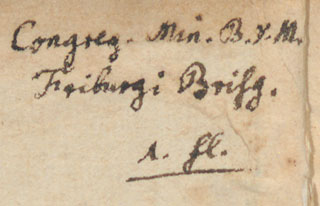 Congreg. Min. B. V. M.
Friburgi Brisg.
1. fl.